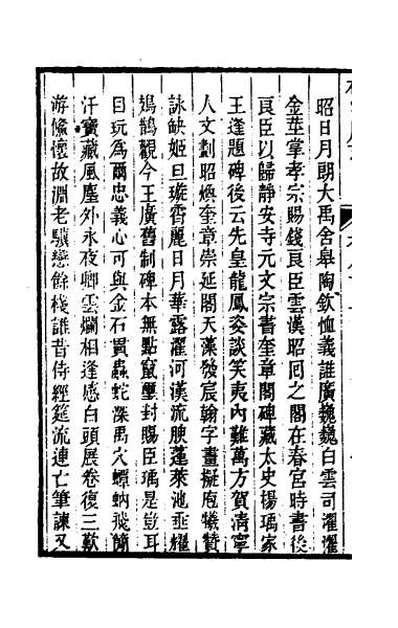 昭日月朗大禹舍皋陶欽恤義誰廣巍巍白雲司濯濯
金莖掌孝宗賜錢良臣雲漢昭回之閣在春宮時書後
良臣以歸靜安寺元文宗書奎章閣碑藏太史揚瑀家
王逢題碑後云先皇龍鳳姿談笑夷內難萬方賀清寧
人文劃昭煥奎章崇延閣天藻發宸翰字畫擬庖犧贊
詠缺姬旦璇霄麗日月華露濯河漢流腴蓬萊池垂耀
鳷鵲觀今王廣舊制碑本無點竄璽封賜臣瑀是豈耳
目玩為爾忠義心可與金石貫蟲蛇深禹穴螺蚋飛簡
汗寶藏風塵外永夜卿雲爛相逢感白頭展卷復三歎
游儵懷故淵老驥戀餘棧誰昔侍經筵流連亡筆諫又